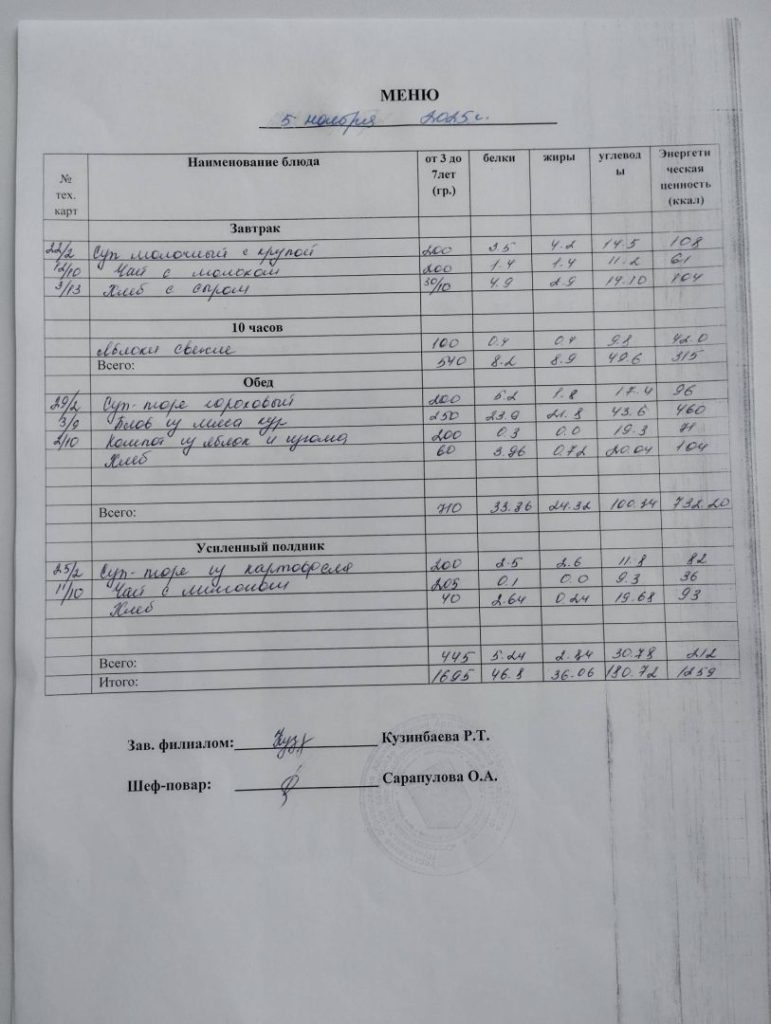 МЕНЮ
5 ноября 2025г.
№ тех. карт Наименование блюда от 3 до 7лет (гр.) белки жиры углеводы Энергетическая ценность (ккал)
Завтрак
22/2 Суп молочный с крупой 200 3.5 4.2 14.5 108
12/10 Чай с молоком 200 1.4 1.4 11.2 61
3/13 Хлеб с сыром 30/10 4.9 2.9 14.10 104
10 часов
Яблоки свежие 100 0.4 0.4 9.8 42.0
Всего: 540 8.2 8.9 49.6 315
Обед
29/2 Суп-пюре гороховый 200 5.2 1.8 17.4 96
3/9 Плов из мяса кур 250 23.9 21.8 43.6 460
2/10 Компот из яблок и изюма 200 0.3 0.0 19.3 71
Хлеб 60 3.96 0.72 20.04 104
Всего: 710 33.86 24.32 100.34 732.20
Усиленный полдник
25/2 Суп-пюре из картофеля 200 2.5 2.6 11.8 82
11/10 Чай с лимоном 205 0.1 0.0 9.3 36
Хлеб 40 2.64 0.24 19.68 93
Всего: 445 5.24 2.84 30.78 212
Итого: 1695 46.8 36.06 180.72 1259
Зав. филиалом: Кузинбаева Р.Т.
Шеф-повар: Сарапулова О.А.